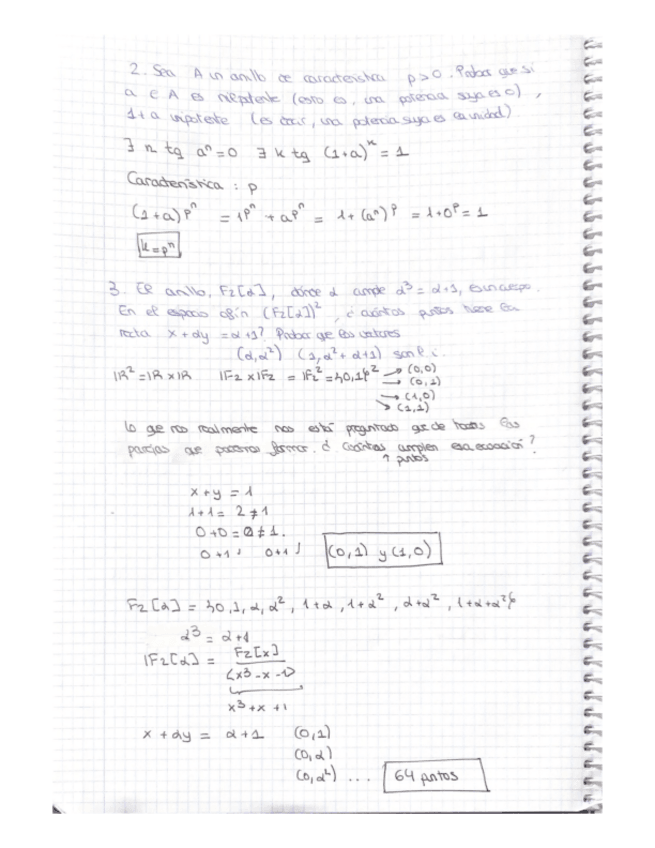 2. Sea A un anillo de característica p > 0. Probar que si
a ∈ A es nilpotente (esto es, una potencia suya es 0),
1+a unipotente (es decir, una potencia suya es la unidad)
∃ n tq aⁿ = 0 ∃ k tq (1+a)^k = 1
Característica : p
(1+a)^pⁿ = 1^pⁿ + a^pⁿ = 1 + (aⁿ)^p = 1 + 0^p = 1
k = pⁿ
3. El anillo, F₂[α], donde α cumple α³ = α+1, es un cuerpo.
En el espacio afín (F₂[α])², ¿ cuántos puntos tiene la
recta x + αy = α+1? Probar que los vectores
(α, α²) (1, α² + α+1) son l. i.
|R² = |R x |R |F₂ x |F₂ = |F₂² = {0,1}² → (0,0)
→ (0,1)
→ (1,0)
→ (1,1)
lo que nos realmente nos está preguntado que de todas las
parejas que podemos formar. ¿ Cuántas cumplen esa ecuación?
↑ puntos
x + y = 1
1 + 1 = 2 ≠ 1
0 + 0 = 0 ≠ 1.
0 + 1 0 + 1
(0,1) y (1,0)
F₂[α] = {0, 1, α, α², 1+α, 1+α², α+α², 1+α+α²}
α³ = α+1
|F₂[α] = F₂[x]
(x³ - x - 1)
x³ + x + 1
x + αy = α + 1 (0,1)
(0,α)
(0,α²) ... 64 puntos